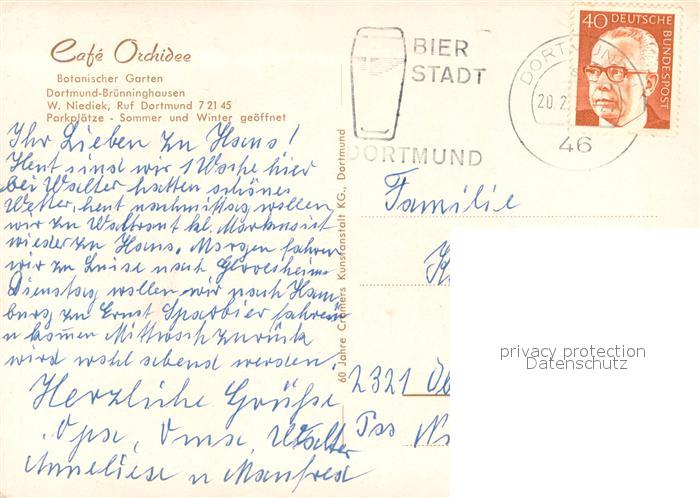 Café Orchidee
Botanischer Garten
Dortmund-Brünninghausen
W. Niediek, Ruf Dortmund 7 21 45
Parkplätze - Sommer und Winter geöffnet
BIER
STADT
DORTMUND
DORTMUND
20.2
46
40 DEUTSCHE
BUNDESPOST
Ihr Lieben zu Haus!
Heut sind wir 1 Woche hier
bei Walter hatten schönes
Wetter, heut nachmittag wollen
wir zu Waltraut kl. Markus ist
wieder zu Haus. Morgen fahren
wir zu Luise nach
Dienstag wollen wir nach Ham
burg zu Ernst Sparbier fahren
u kommen Mittwoch zurück
wird wohl abend werden.
Herzliche Grüße
Opa, Oma, Walter
Anneliese u Manfred
60 Jahre Cramers Kunstanstalt KG., Dortmund
Familie
2321
privacy protection
Datenschutz